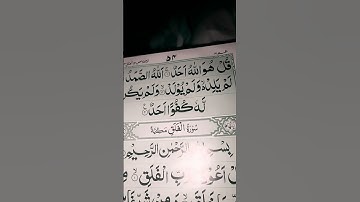 ۵۴
قُلْ هُوَ اللّٰهُ اَحَدٌ اَللّٰهُ الصَّمَدُ
لَمْ يَلِدْ وَلَمْ يُوْلَدْ وَلَمْ يَكُنْ
لَّهٗ كُفُوًا اَحَدٌ
سُوْرَةُ الْفَلَقِ مَكِّيَّةٌ
بِسْمِ اللّٰهِ الرَّحْمٰنِ الرَّحِيْمِ
اَعُوْذُ بِرَبِّ الْفَلَقِ
خَلَقَ وَمِنْ شَرِّ